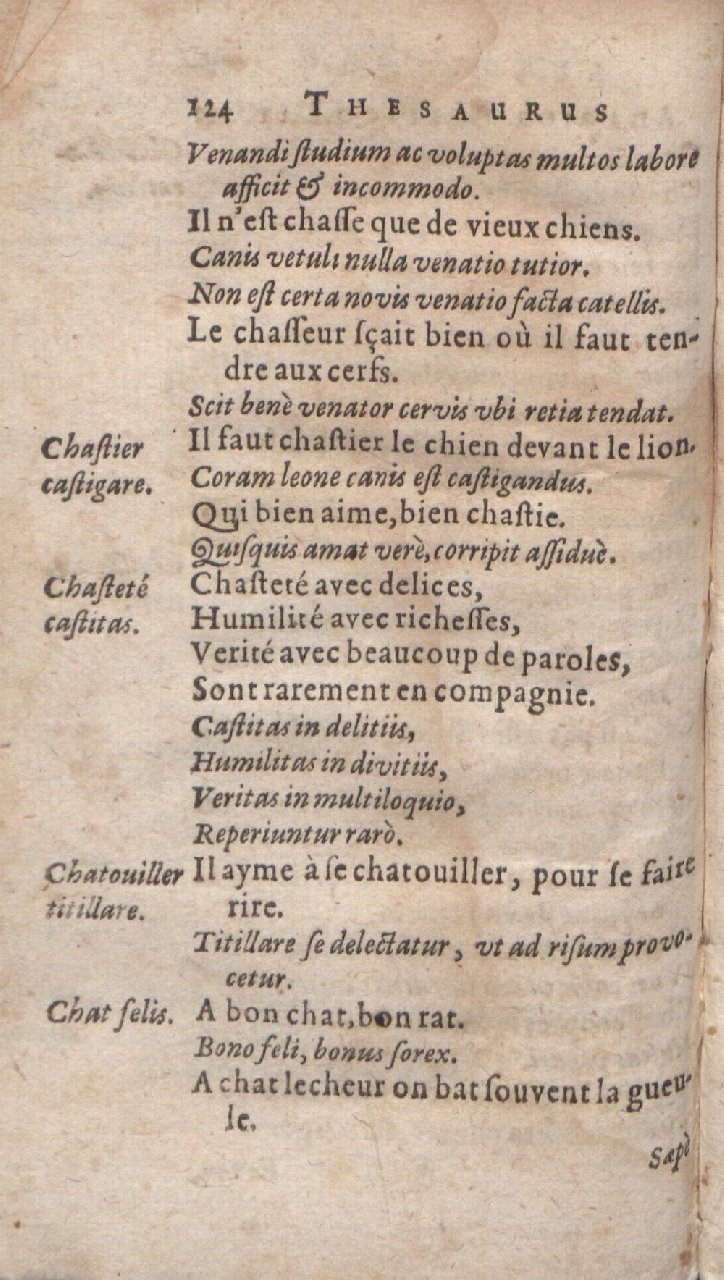 124 THESAURUS
Venandi ſtudium ac voluptas multos labore
afficit & incommodo.
Il n'eſt chaſſe que de vieux chiens.
Canis vetuli nulla venatio tutior.
Non eſt certa novis venatio facta catellis.
Le chaſſeur ſçait bien où il faut ten-
dre aux cerfs.
Scit benè venator cervis vbi retia tendat.
Chaſtier
caſtigare.
Il faut chaſtier le chien devant le lion.
Coram leone canis eſt caſtigandus.
Qui bien aime, bien chaſtie.
Quiſquis amat verè, corripit aſſiduè.
Chaſteté
caſtitas.
Chaſteté avec delices,
Humilité avec richeſſes,
Verité avec beaucoup de paroles,
Sont rarement en compagnie.
Caſtitas in delitiis,
Humilitas in divitiis,
Veritas in multiloquio,
Reperiuntur rarò.
Chatouiller
titillare.
Il ayme à ſe chatouiller, pour ſe faire
rire.
Titillare ſe delectatur, vt ad riſum provo-
cetur.
Chat felis.
A bon chat, bon rat.
Bono feli, bonus ſorex.
A chat lecheur on bat ſouvent la gueu-
le.
Sæpè